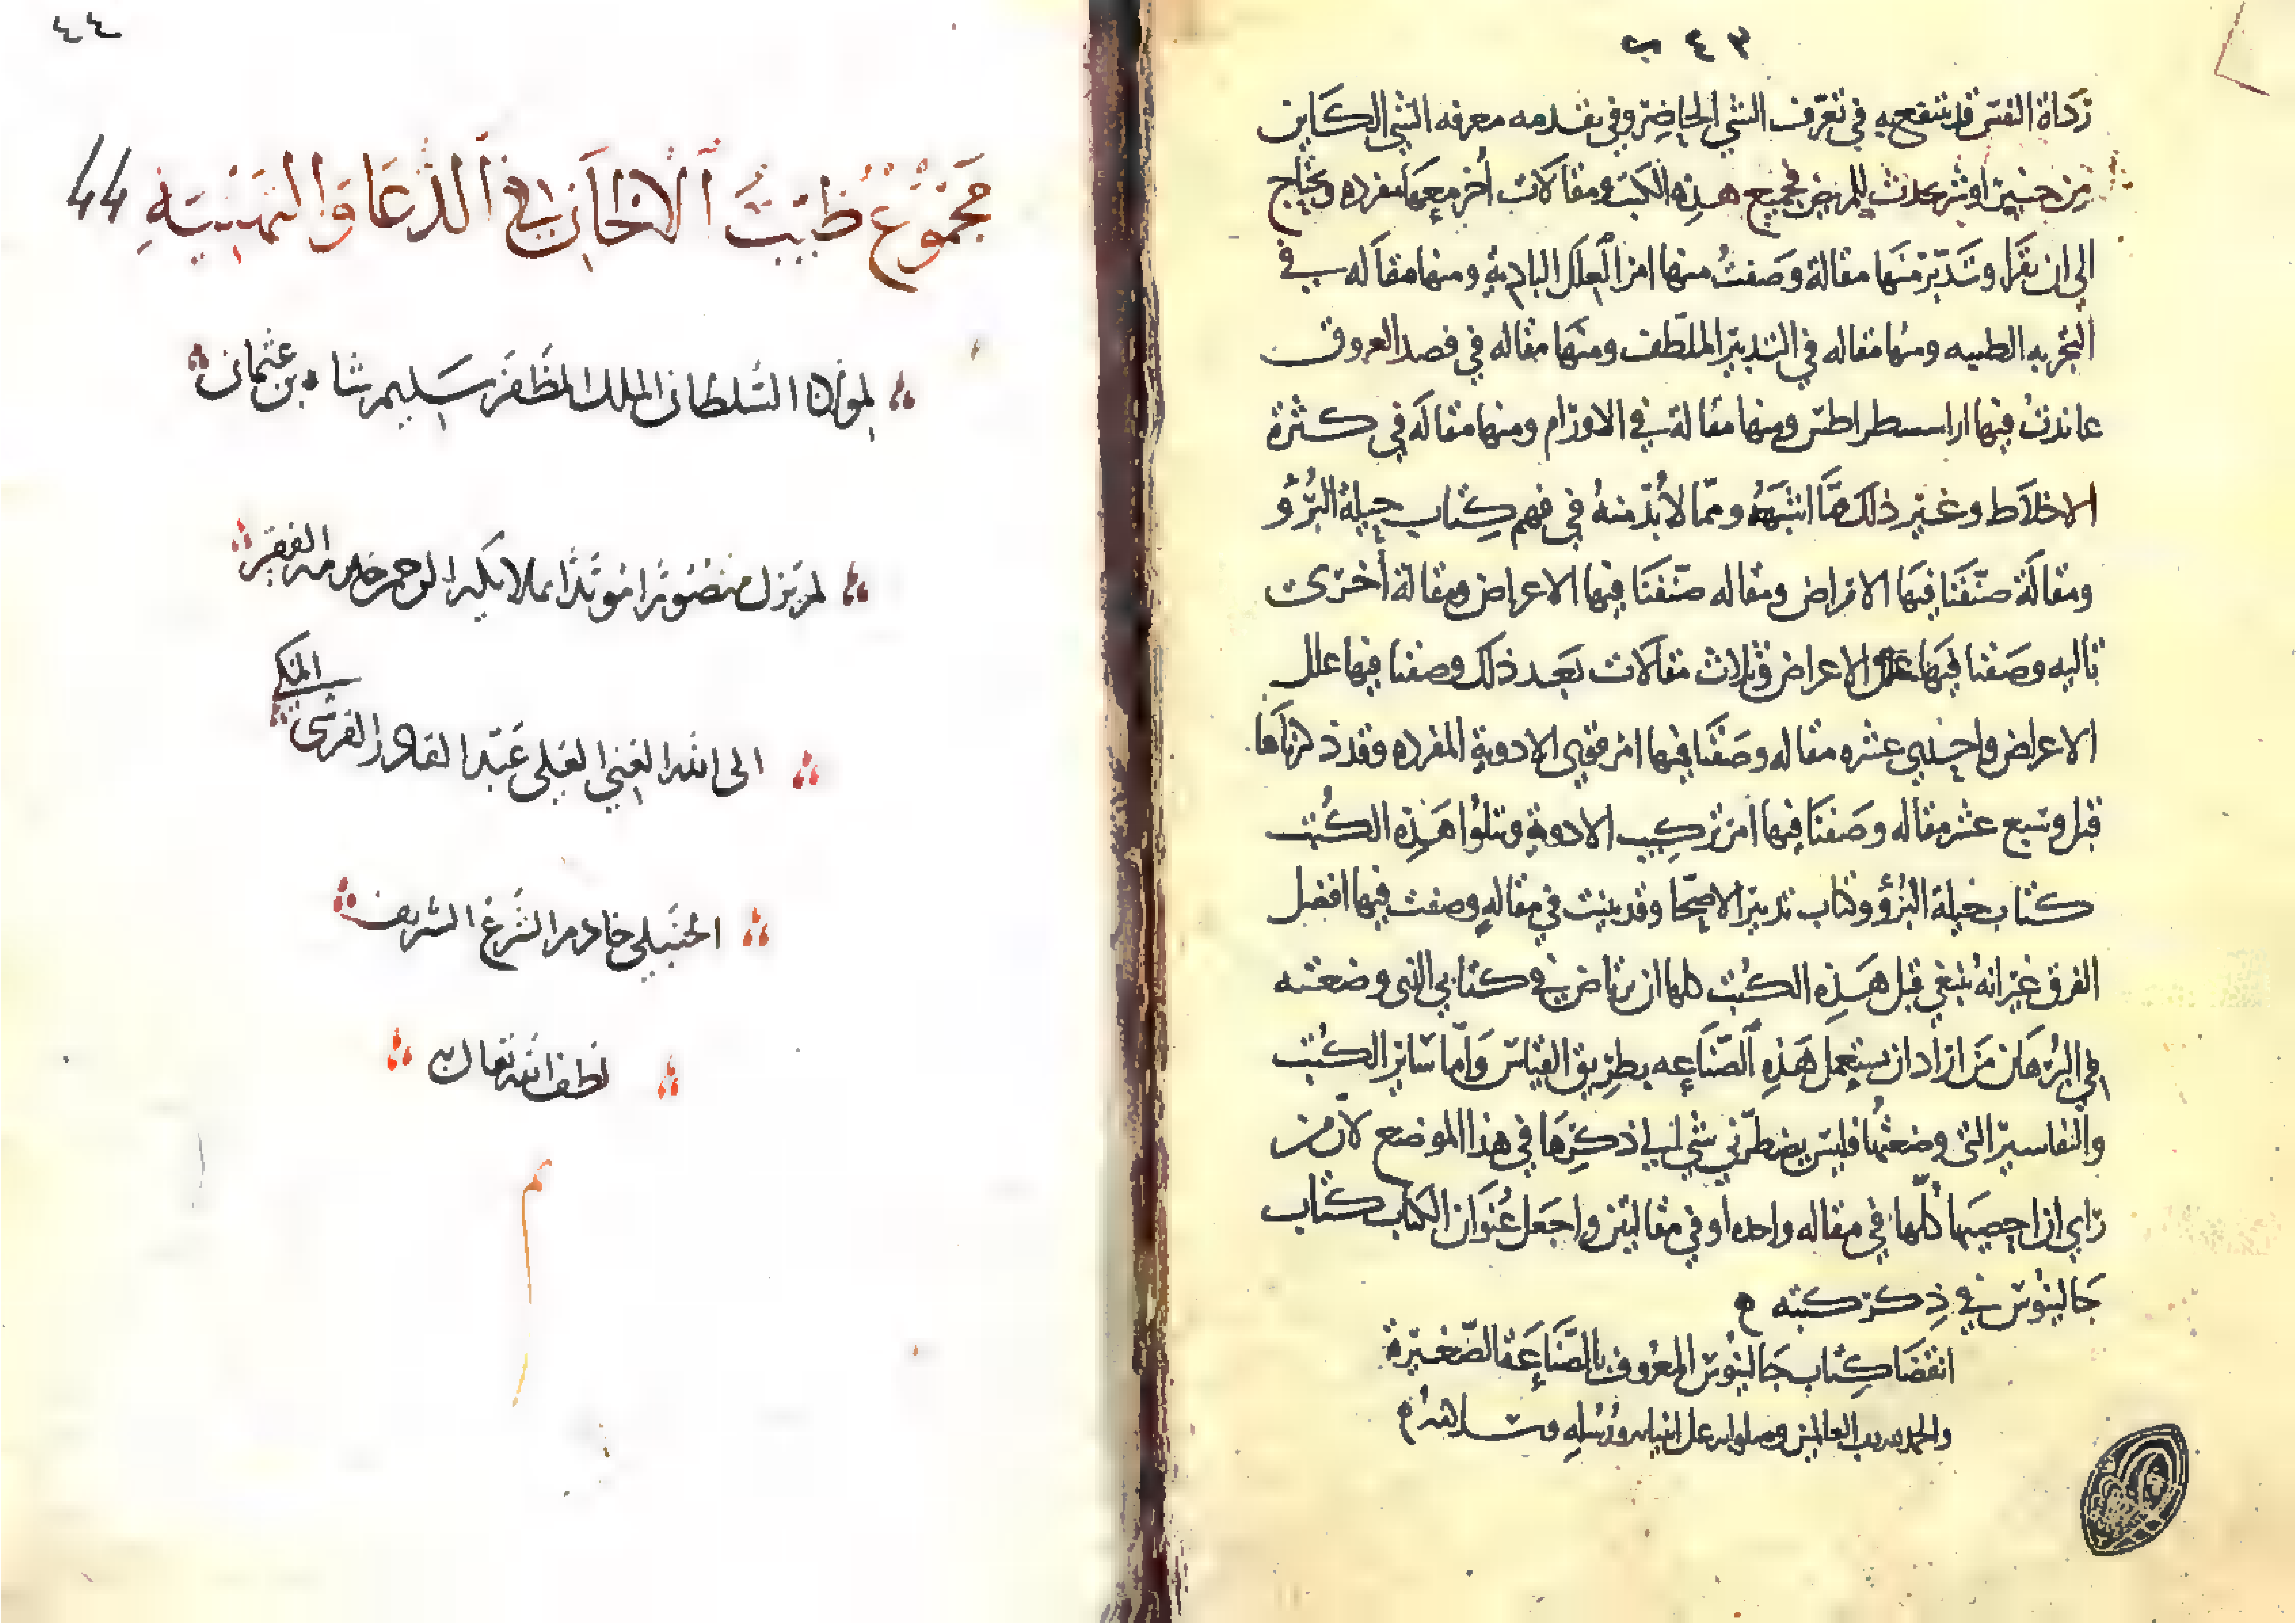 ٤٣ ب
رداة النفس قد ينتفع به في تعرف الشي الحاضر وفي تقدمه معرفه الشي الكاين
من حنين او شر حدث للمريض فجميع هذه الكتب ومقالات أخر معها مفرده ويحتاج
الى ان يقرا وتتدبر منها مقالة وصفت منها امر العلل البادية ومنها مقاله في
التجربه الطبيه ومنها مقاله في التدبير الملطف ومنها مقاله في فصد العروق
عاندت فيها اراسسطراطس ومنها مقالة في الاورام ومنها مقاله في كثرة
الاخلاط وغير ذلك مما اشبهه ومما لابد منه في فهم كتاب حيلة البرؤ
ومقالة صنفنا فيها الامراض ومقاله صنفنا فيها الاعراض ومقالة أخرى
تاليه وصفنا فيها علل الاعراض وثلاث مقالات بعد ذلك وصفنا فيها علل
الاعراض واحدى عشره مقاله وصفنا فيها امر قوى الادوية المفرده وقد ذكرناها
قبل وسبع عشر مقاله وصفنا فيها امر تركيب الادوية وتتلوا هذه الكتب
كتاب حيلة البرؤ وكتاب تدبير الاصحا وقد بينت في مقاله وصفت فيها افضل
الفرق غير انه ينبغي قبل هذه الكتب كلها ان يرتاض في كتابي الذي وضعته
في البرهان من اراد ان يستعمل هذه الصناعه بطريق القياس واما ساير الكتب
والتفاسير التي وضعتها فليس يضطرني شي الى ذكرها في هذا الموضع لان من
راي ان احصيها كلها في مقاله واحده او في مقالتين واجعل عنوان الكتاب كتاب
جالينوس في ذكر كتبه
انقضا كتاب جالينوس المعروف بالصناعة الصغيرة
والحمد لله رب العالمين وصلواته على انبيايه ورسله وسلامه
٤٤
مجموع طيب الالحان في الدعا والتهنية 44
لمولانا السلطان الملك المظفر سليم شاه بن عثمان
لم يزل منصورا مويدا بملايكه الرحمن خدمه الفقير
الى الله الغني العلي عبد القادر القرشى المكى
الحنبلى خادم الشرع الشريف
لطف الله تعالى به